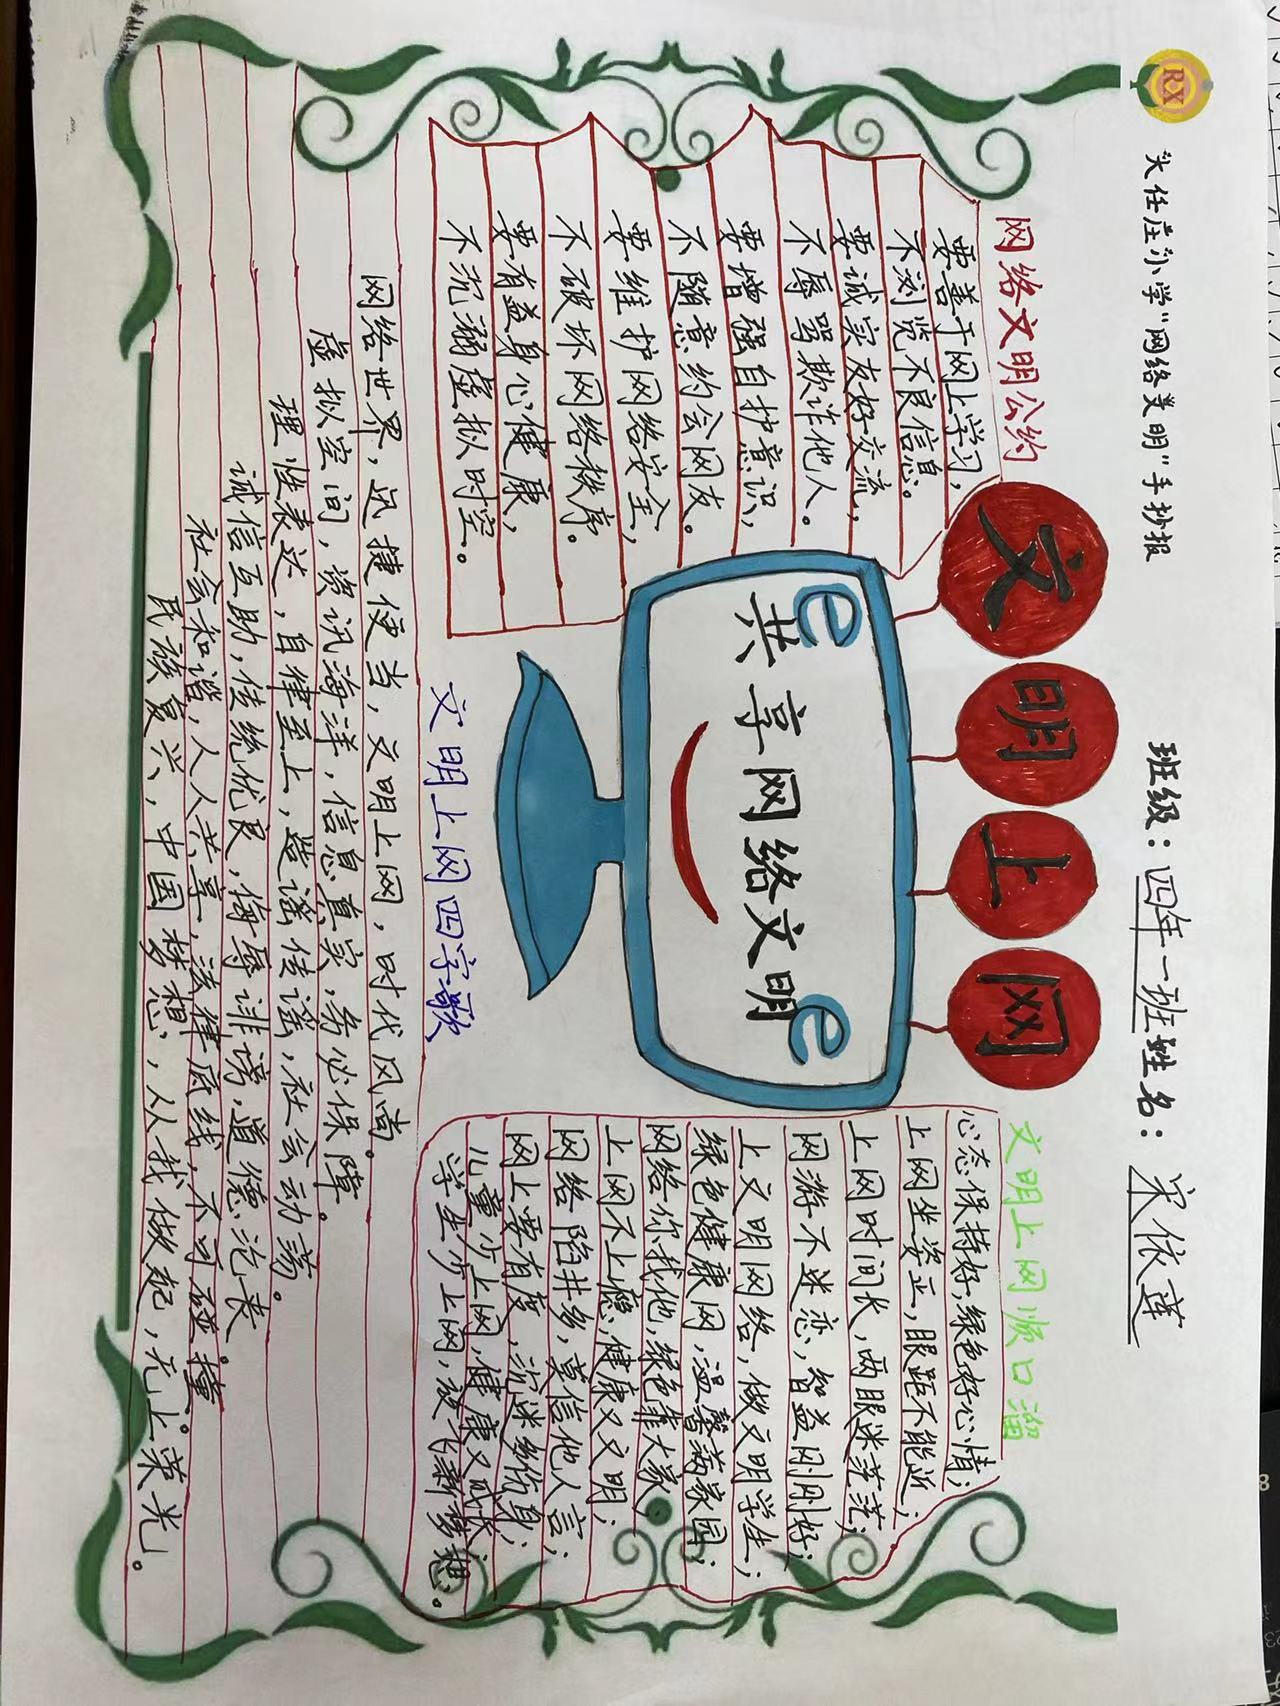 RX
头任庄小学"网络文明"手抄报
班级：四年一班姓名：宋依莲
文明上网
网络文明公约
要善于网上学习，
不浏览不良信息。
要诚实友好交流，
不辱骂欺诈他人。
要增强自护意识，
不随意约会网友。
要维护网络安全，
不破坏网络秩序。
要有益身心健康，
不沉溺虚拟时空。
e e
共享网络文明
文明上网顺口溜
心态保持好，绿色好心情；
上网坐姿正，眼距不能近；
上网时间长，两眼迷茫茫；
网游不迷恋，智益刚刚好；
上文明网络，做文明学生；
绿色健康网，温馨满家园；
网络你我他，绿色靠大家；
上网不上瘾，健康又文明；
网络陷井多，莫信他人言；
网上要有度，沉迷会伤身；
儿童少上网，健康又成长；
学生少上网，放飞新梦想。
文明上网四字歌
网络世界，迅捷便当，文明上网，时代风尚。
虚拟空间，资讯海洋，信息真实，务必保障。
理性表达，自律至上，造谣传谣，社会动荡。
诚信互助，传统优良，侮辱诽谤，道德沦丧
社会和谐，人人共享，法律底线，不可碰撞。
民族复兴，中国梦想，从我做起，无上荣光。